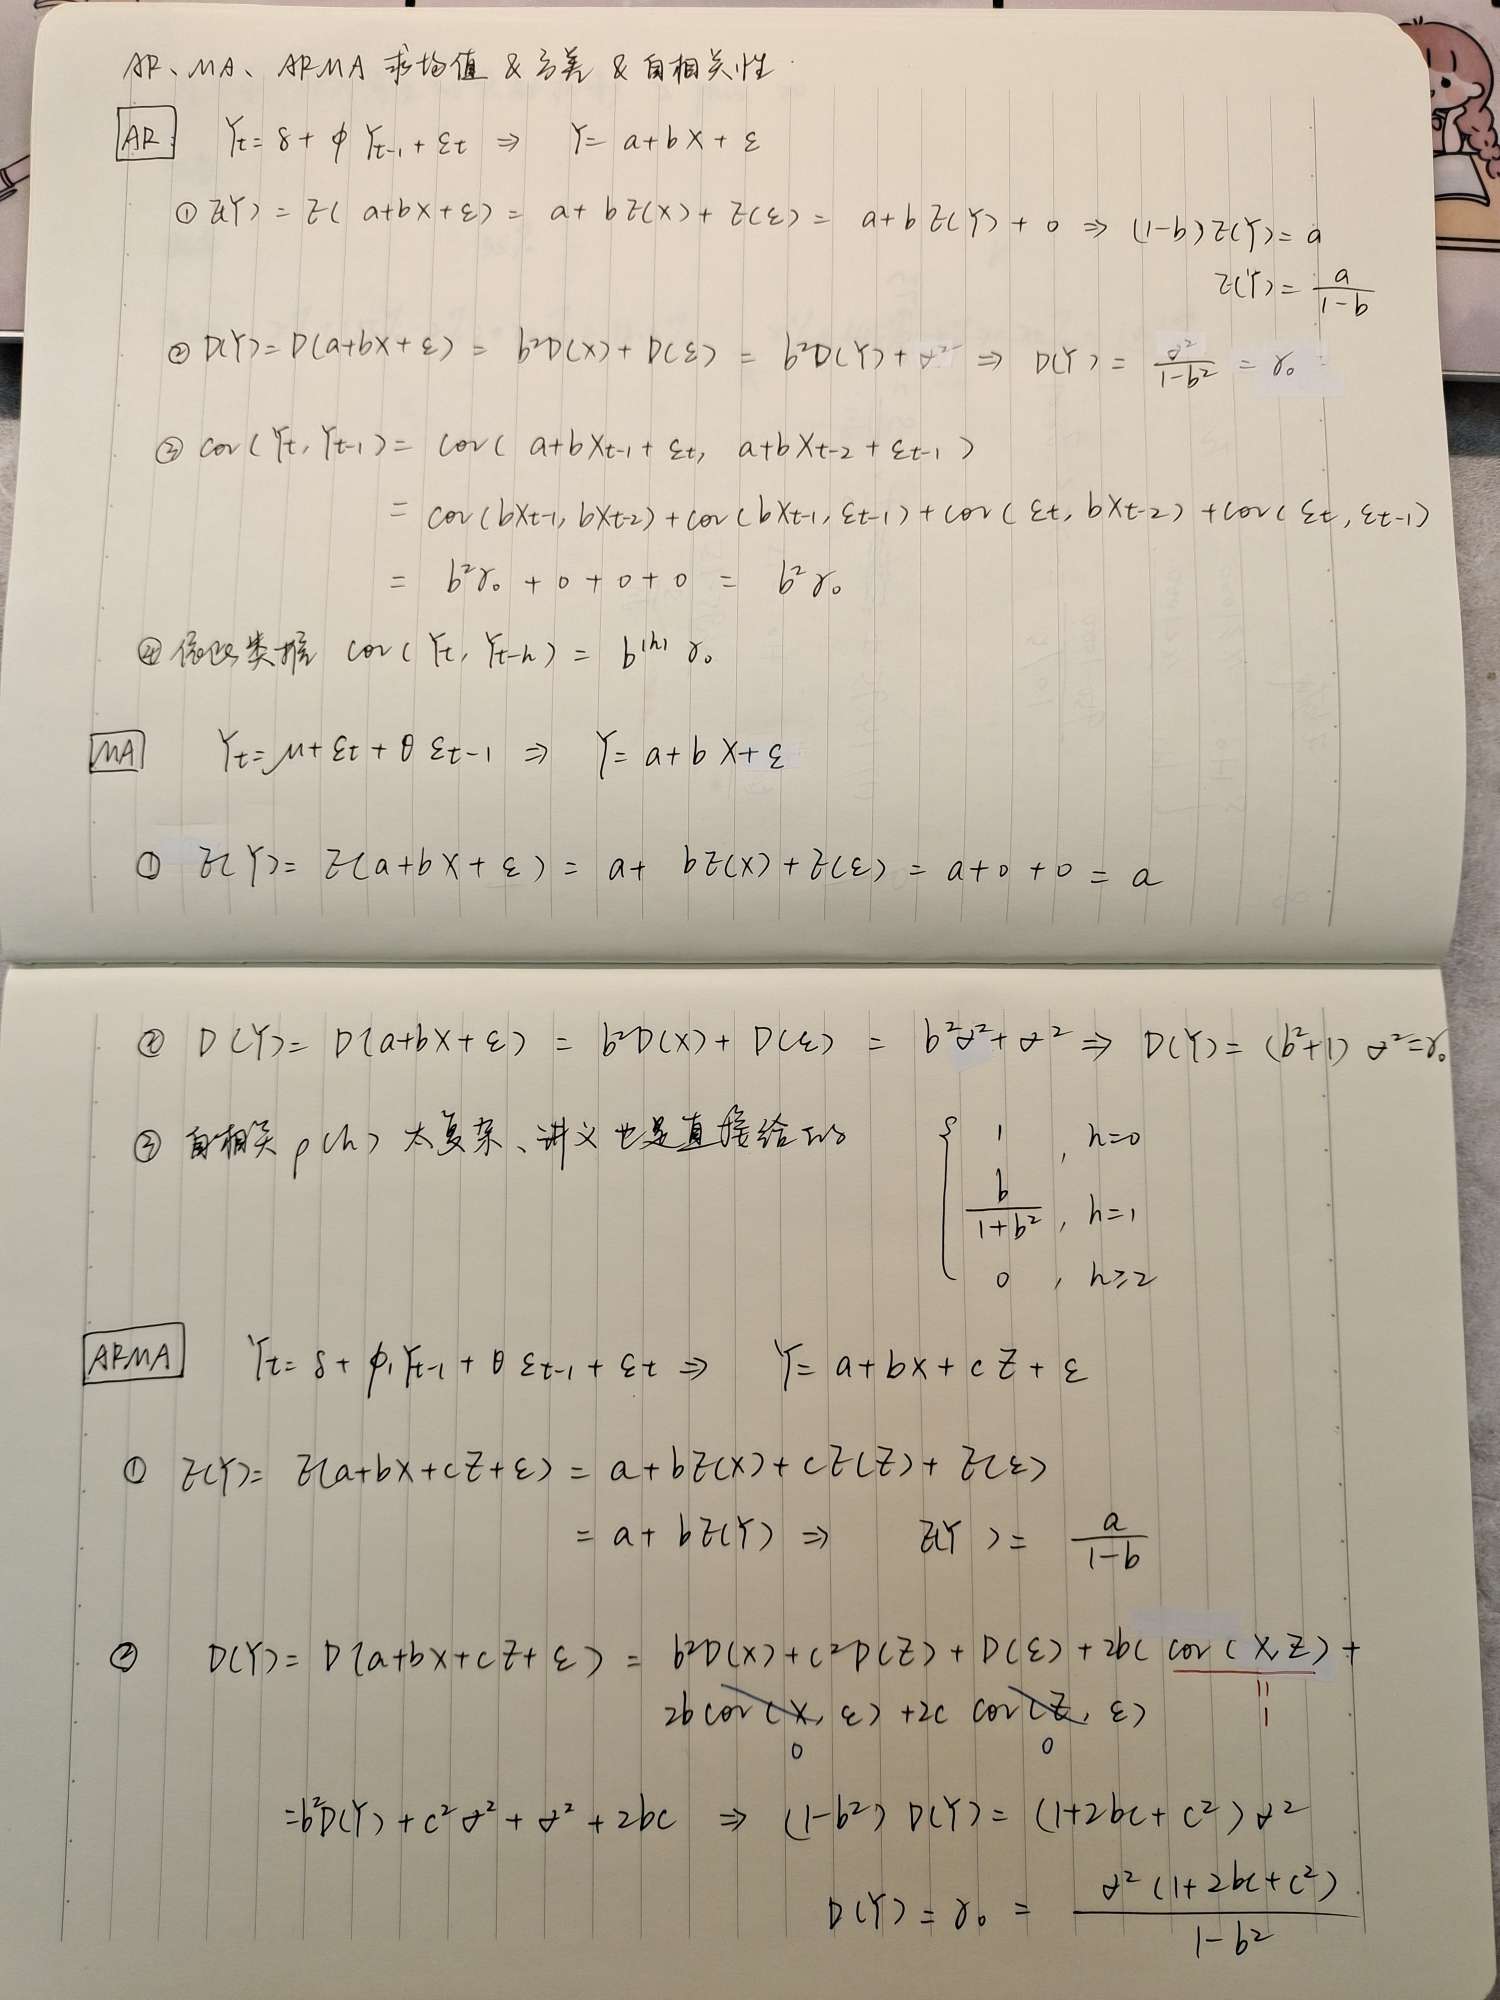 AR、MA、ARMA 求均值 & 方差 & 自相关性
AR: Yt = δ + φ Yt-1 + εt ⇒ Y = a + bX + ε
① E(Y) = E(a+bX+ε) = a + bE(X) + E(ε) = a + bE(Y) + 0 ⇒ (1-b)E(Y) = a
E(Y) = a/(1-b)
② D(Y) = D(a+bX+ε) = b²D(X) + D(ε) = b²D(Y) + σ² ⇒ D(Y) = σ²/(1-b²) = γ₀
③ cov(Yt, Yt-1) = cov(a+bXt-1+εt, a+bXt-2+εt-1)
= cov(bXt-1, bXt-2) + cov(bXt-1, εt-1) + cov(εt, bXt-2) + cov(εt, εt-1)
= b²γ₀ + 0 + 0 + 0 = b²γ₀
④ 依此类推 cov(Yt, Yt-h) = b^|h| γ₀
MA Yt = μ + εt + θ εt-1 ⇒ Y = a + bX + ε
① E(Y) = E(a+bX+ε) = a + bE(X) + E(ε) = a + 0 + 0 = a
② D(Y) = D(a+bX+ε) = b²D(X) + D(ε) = b²σ² + σ² ⇒ D(Y) = (b²+1)σ² = γ₀
③ 自相关 ρ(h) 太复杂、讲义也是直接给的 { 1 , h=0
b/(1+b²) , h=1
0 , h≥2
ARMA Yt = δ + φ₁Yt-1 + θ εt-1 + εt ⇒ Y = a + bX + cZ + ε
① E(Y) = E(a+bX+cZ+ε) = a + bE(X) + cE(Z) + E(ε)
= a + bE(Y) ⇒ E(Y) = a/(1-b)
② D(Y) = D(a+bX+cZ+ε) = b²D(X) + c²D(Z) + D(ε) + 2bc cov(X,Z) +
2b cov(X, ε) + 2c cov(Z, ε) = 1
0 0
= b²D(Y) + c²σ² + σ² + 2bc ⇒ (1-b²) D(Y) = (1+2bc+c²)σ²
D(Y) = γ₀ = σ²(1+2bc+c²)/(1-b²)